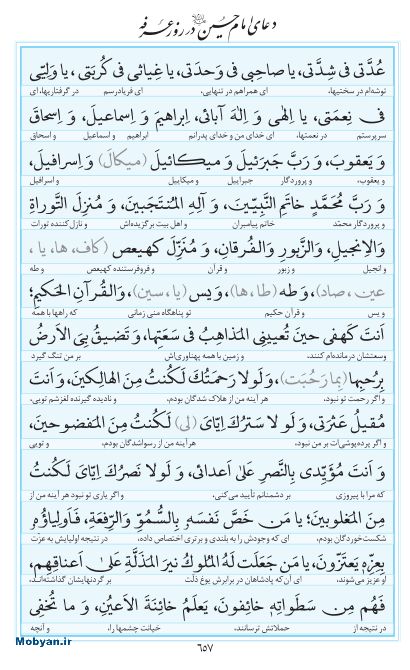 دعای امام حسین علیه السلام در روز عرفه
عُدَّتی فی شِدَّتی، یا صاحِبی فی وَحدَتی، یا غِیاثی فی کُربَتی، یا وَلِیّی
توشه‌ام در سختیها، ای همراهم در تنهایی، ای فریادرسم در گرفتاریها، ای
فی نِعمَتی، یا اِلٰهی وَ اِلٰهَ آبائی، اِبراهیمَ وَ اِسماعیلَ، وَ اِسحاقَ
سرپرستم در نعمتها، ای خدای من و خدای پدرانم ابراهیم و اسماعیل و اسحاق
وَ یَعقوبَ، وَ رَبَّ جَبرَئیلَ وَ میکائیلَ (میکالَ) وَ اِسرافیلَ،
و یعقوب، و پروردگار جبراییل و میکاییل و اسرافیل
وَ رَبَّ مُحَمَّدٍ خاتَمِ النَّبِیّینَ، وَ آلِهِ المُنتَجَبینَ، وَ مُنزِلَ التَّوراةِ
و پروردگار محمّد خاتم پیامبران و اهل بیت برگزیده‌اش و نازل‌کننده تورات
وَ الاِنجیلِ، وَ الزَّبورِ وَ الفُرقانِ، وَ مُنَزِّلَ کهیعص (کاف، ها، یا،
و انجیل و زبور و قرآن و فروفرستنده کهیعص و طه
عین، صاد)، وَ طه (طا، ها)، وَ یس (یا، سین)، وَ القُرآنِ الحَکیمِ؛
و یس و قرآن حکیم تو پناهگاه منی زمانی که راهها با همه
اَنتَ کَهفی حینَ تُعیینِی المَذاهِبُ فی سَعَتِها، وَ تَضیقُ بِیَ الاَرضُ
وسعتشان درمانده‌ام کنند، و زمین با همه پهناوری‌اش بر من تنگ گیرد
بِرُحبِها (بِما رَحُبَت)، وَ لَولا رَحمَتُکَ لَکُنتُ مِنَ الهالِکینَ، وَ اَنتَ
و اگر رحمت تو نبود، هر آینه من از هلاک شدگان بودم، و نادیده گیرنده لغزشم تویی،
مُقیلُ عَثرَتی، وَ لَولا سَترُکَ اِیّایَ (لی) لَکُنتُ مِنَ المَفضوحینَ،
و اگر پرده‌پوشی‌ات بر من نبود، هر آینه من از رسواشدگان بودم، و تویی
وَ اَنتَ مُؤَیِّدی بِالنَّصرِ عَلیٰ اَعدائی، وَ لَولا نَصرُکَ اِیّایَ لَکُنتُ
که مرا با پیروزی بر دشمنانم تأیید می‌کنی، و اگر یاری تو نبود هر آینه من از
مِنَ المَغلوبینَ؛ یا مَن خَصَّ نَفسَهُ بِالسُّمُوِّ وَ الرِّفعَةِ، فَاَولِیاؤُهُ
شکست‌خوردگان بودم، ای که وجودش را به بلندی و برتری اختصاص داده، در نتیجه اولیایش به عزّت
بِعِزِّهِ یَعتَزّونَ، یا مَن جَعَلَت لَهُ المُلوکُ نیرَ المَذَلَّةِ عَلیٰ اَعناقِهِم،
او عزیز می‌شوند، ای آن که پادشاهان در برابرش یوغ ذلّت بر گردنهایشان گذاشته‌اند،
فَهُم مِن سَطَواتِهِ خائِفونَ، یَعلَمُ خائِنَةَ الاَعیُنِ، وَ ما تُخفِی
در نتیجه از حملاتش ترسانند، خیانت چشمها را، و آنچه
Mobyan.ir
۶۵۷